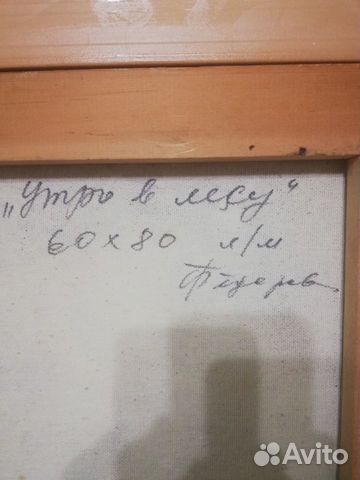 „Утро в лесу"
60 х 80 л/м
Федоров
Avito